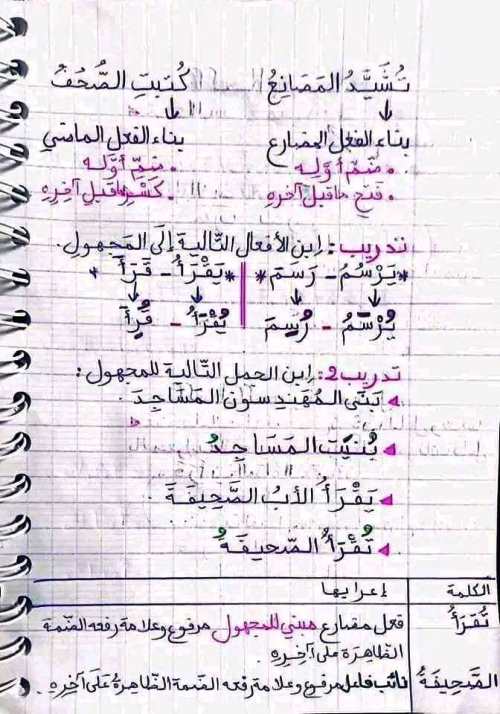 تُشَيَّدُ المَصَانِعُ    كُتِبَتِ الصُّحُفُ
بناء الفعل المضارع    بناء الفعل الماضي
• ضَمّ أوَّلِه    • ضَمّ أوَّلِه
• فتح ما قبل آخرِهِ    • كَسْر ما قبل آخِرِهِ
تدريب: اِبنِ الأفعال التّالية إِلَى المَجهولِ.
*يَرْسُمُ - رَسَمَ* *يَقْرَأُ - قَرَأَ*
يُرْسَمُ - رُسِمَ    يُقْرَأُ - قُرِأَ
تدريب 2: اِبنِ الجمل التّالية للمجهول:
بَنَى المُهَندِسُونَ المَسَاجِدَ
بُنِيَت المَسَاجِدُ
يَقْرَأُ الأبُ الصَّحِيفَةَ.
تُقْرَأُ الصّحيفَةُ
الكلمة    إعرابها
تُقرَأُ    فعل مضارع مبني للمجهول مرفوع وعلامة رفعه الضّمة
الظاهِرَة على آخِرِهِ
الصَّحِيفَةُ    نائب فاعل مرفوع وعلامة رفعه الضّمة الظّاهِرَةُ عَلَى آخِرِهِ.